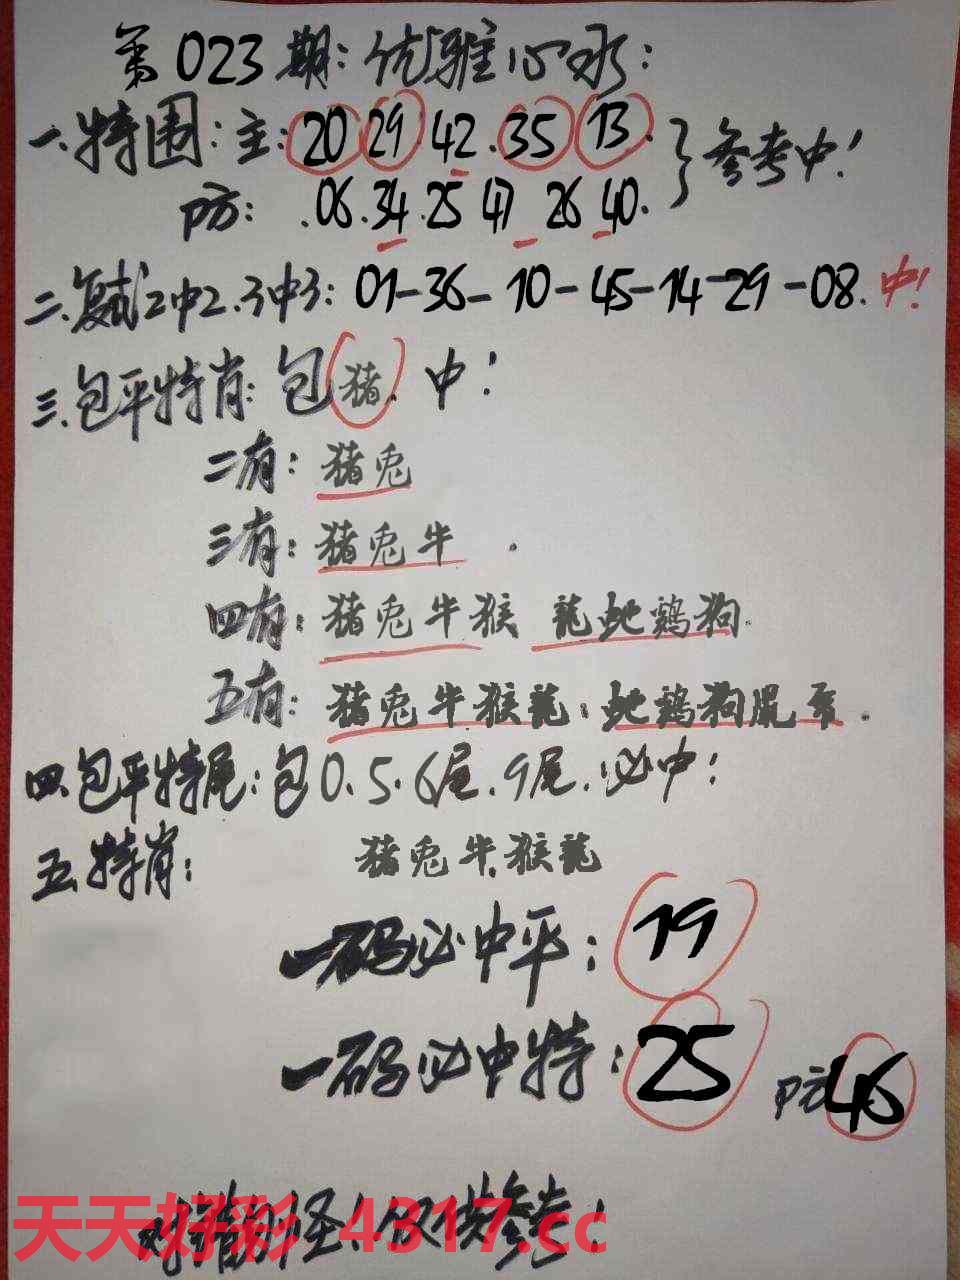 第023期：优雅心水：
一.特围：主：20 29.42.35 13.
防：.06.34.25 47 26 40.
参考中！
二.复式2中2.3中3：01-36-10-45-14-29-08.中！
三.包平特肖：包猪.中！
二有：猪兔
三有：猪兔牛.
四有：猪兔牛猴 龍蛇鷄狗.
五有：猪兔牛猴龍：蛇鷄狗鼠
四.包平特尾：包0.5.6尾.9尾.必中！
五.特肖：猪兔牛.猴龍
一码必中平：19
一码必中特：25 防46
天天好彩 4317.cc
仅供参考！